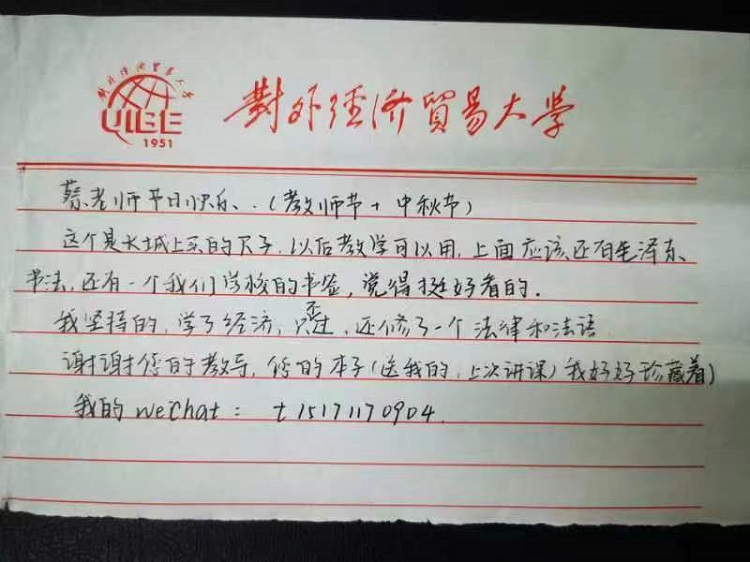 对外经济贸易大学
UIBE
1951
對外經济貿易大学
蔡老师节日快乐.(教师节+中秋节)
这个是长城上买的尺子,以后教学可以用,上面应该还有毛泽东
书法,还有一个我们学校的书签,觉得挺好看的.
我坚持的,学了经济,不过,还修了一个法律和法语
谢谢您的教导,您的本子(送我的,上次讲课)我好好珍藏着)
我的wechat: t15171170904.